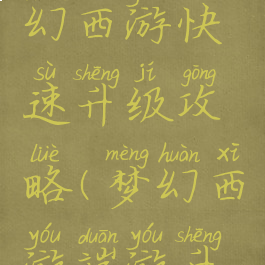 幻西游快
sù shēng jí gōng
速升级攻
lüè mèng huàn xī
略(梦幻西
yóu duān yóu shēng
游端游升